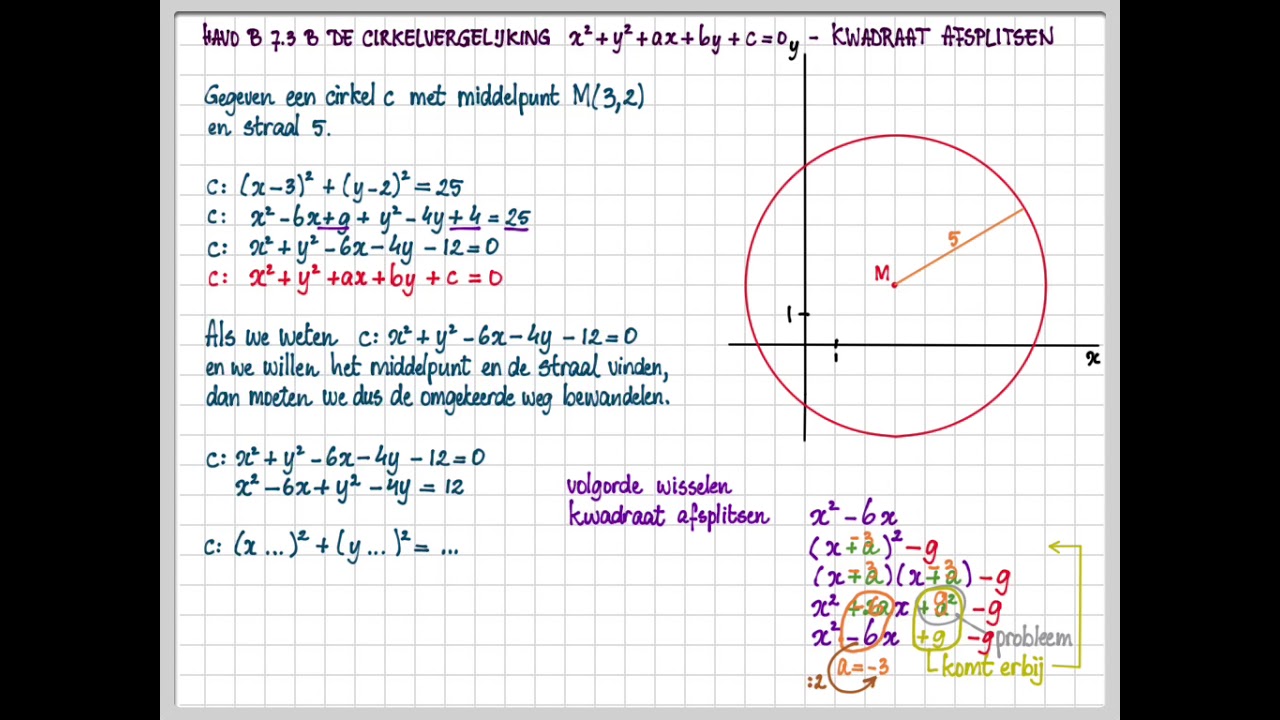 HAVO B 7.3 B DE CIRKELVERGELIJKING x² + y² + ax + by + c = 0 - KWADRAAT AFSPLITSEN
Gegeven een cirkel c met middelpunt M(3,2)
en straal 5.
c: (x-3)² + (y-2)² = 25
c: x² - 6x + 9 + y² - 4y + 4 = 25
c: x² + y² - 6x - 4y - 12 = 0
c: x² + y² + ax + by + c = 0
Als we weten c: x² + y² - 6x - 4y - 12 = 0
en we willen het middelpunt en de straal vinden,
dan moeten we dus de omgekeerde weg bewandelen.
c: x² + y² - 6x - 4y - 12 = 0
x² - 6x + y² - 4y = 12
c: (x ...)² + (y ...)² = ...
volgorde wisselen
kwadraat afsplitsen
y
5
M
1
1
x
x² - 6x
(x -3)² - 9
(x -3)(x -3) - 9
x² x - 9
x² - 6x + 9 - 9 probleem
a = -3 komt erbij
:2